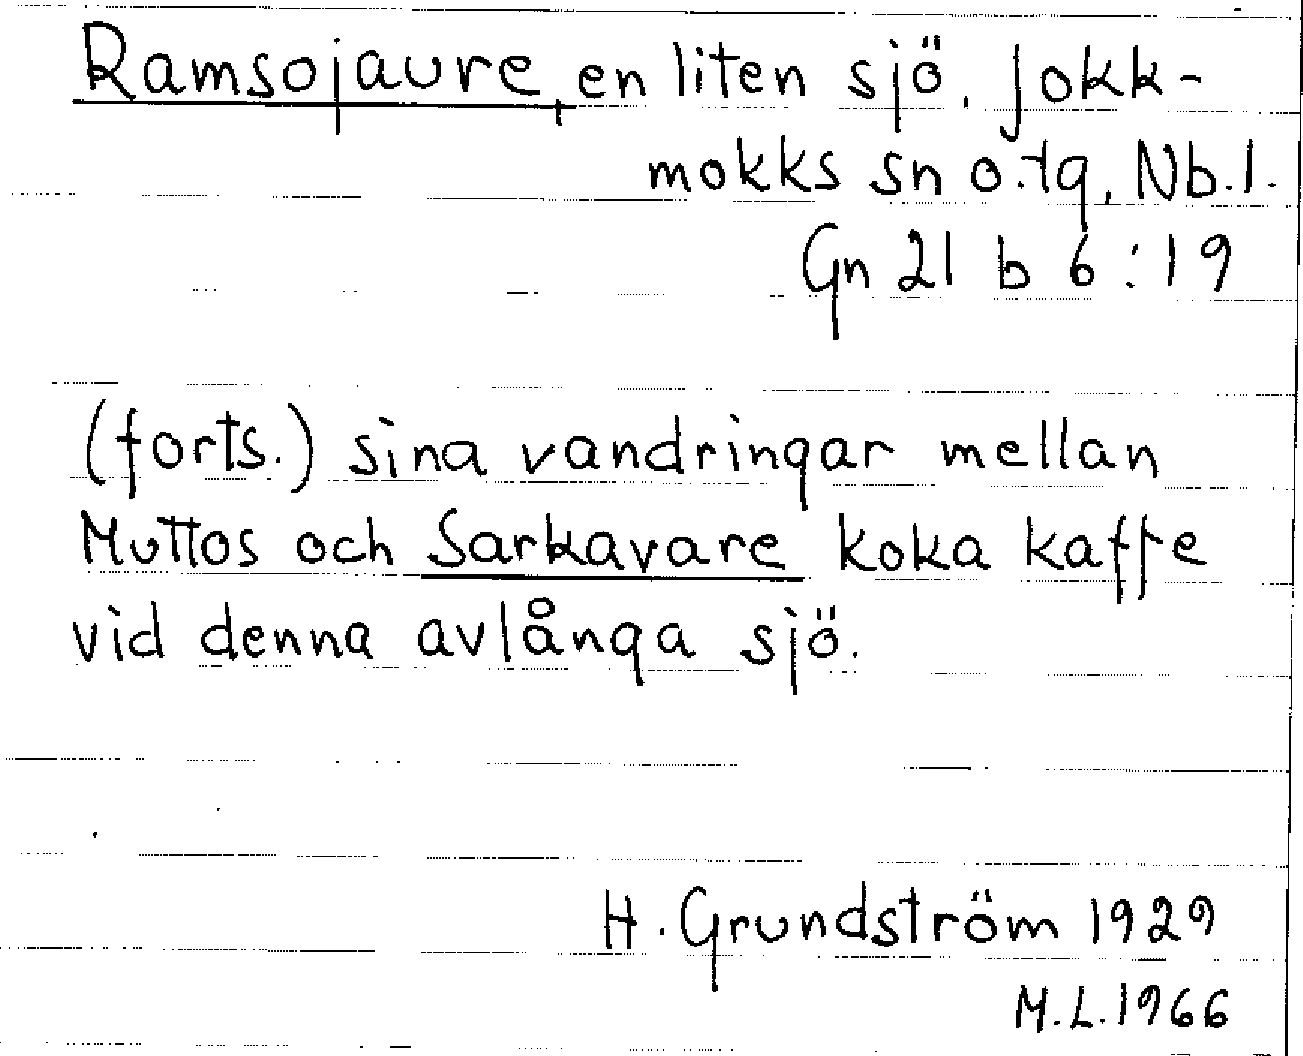 Ramsojaure, en liten sjö. Jokk-
mokks sn o. tg, Nb. l.
Gn 21 b 6:19
(forts.) sina vandringar mellan
Muttos och Sarkavare koka kaffe
vid denna avlånga sjö.
H. Grundström 1929
M.L. 1966